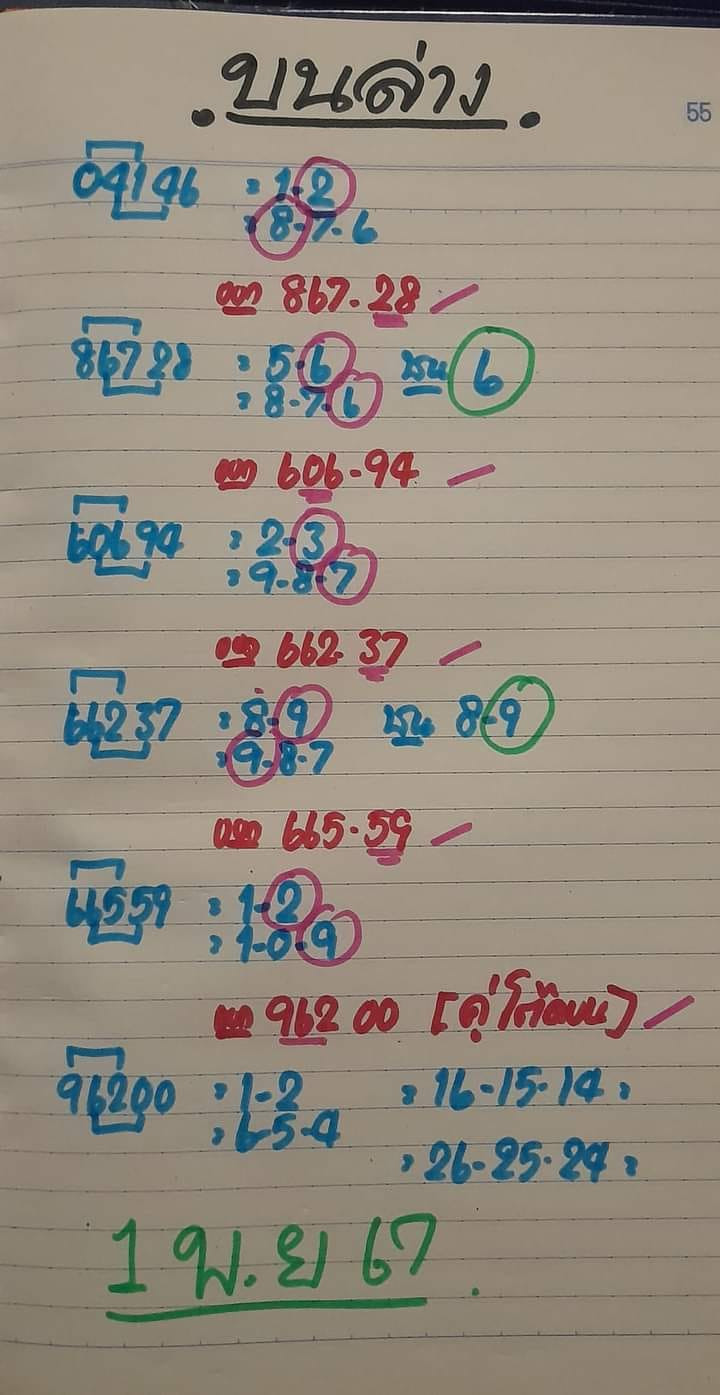 . บนล่าง .
55
04146 : 1-2
: 8-7-6
ออก 867-28
86728 : 5-6 ชน 6
: 8-7-6
ออก 606-94
60694 : 2-3
: 9-8-7
ออก 662-37
66237 : 8-9 ชน 8-9
: 9-8-7
ออก 665-59
66559 : 1-2
: 1-0-9
ออก 962 00 [คู่โต๊ดบน]
96200 : 1-2 : 16-15-14 :
: 6-5-4
: 26-25-24 :
1 พ.ย 67 .